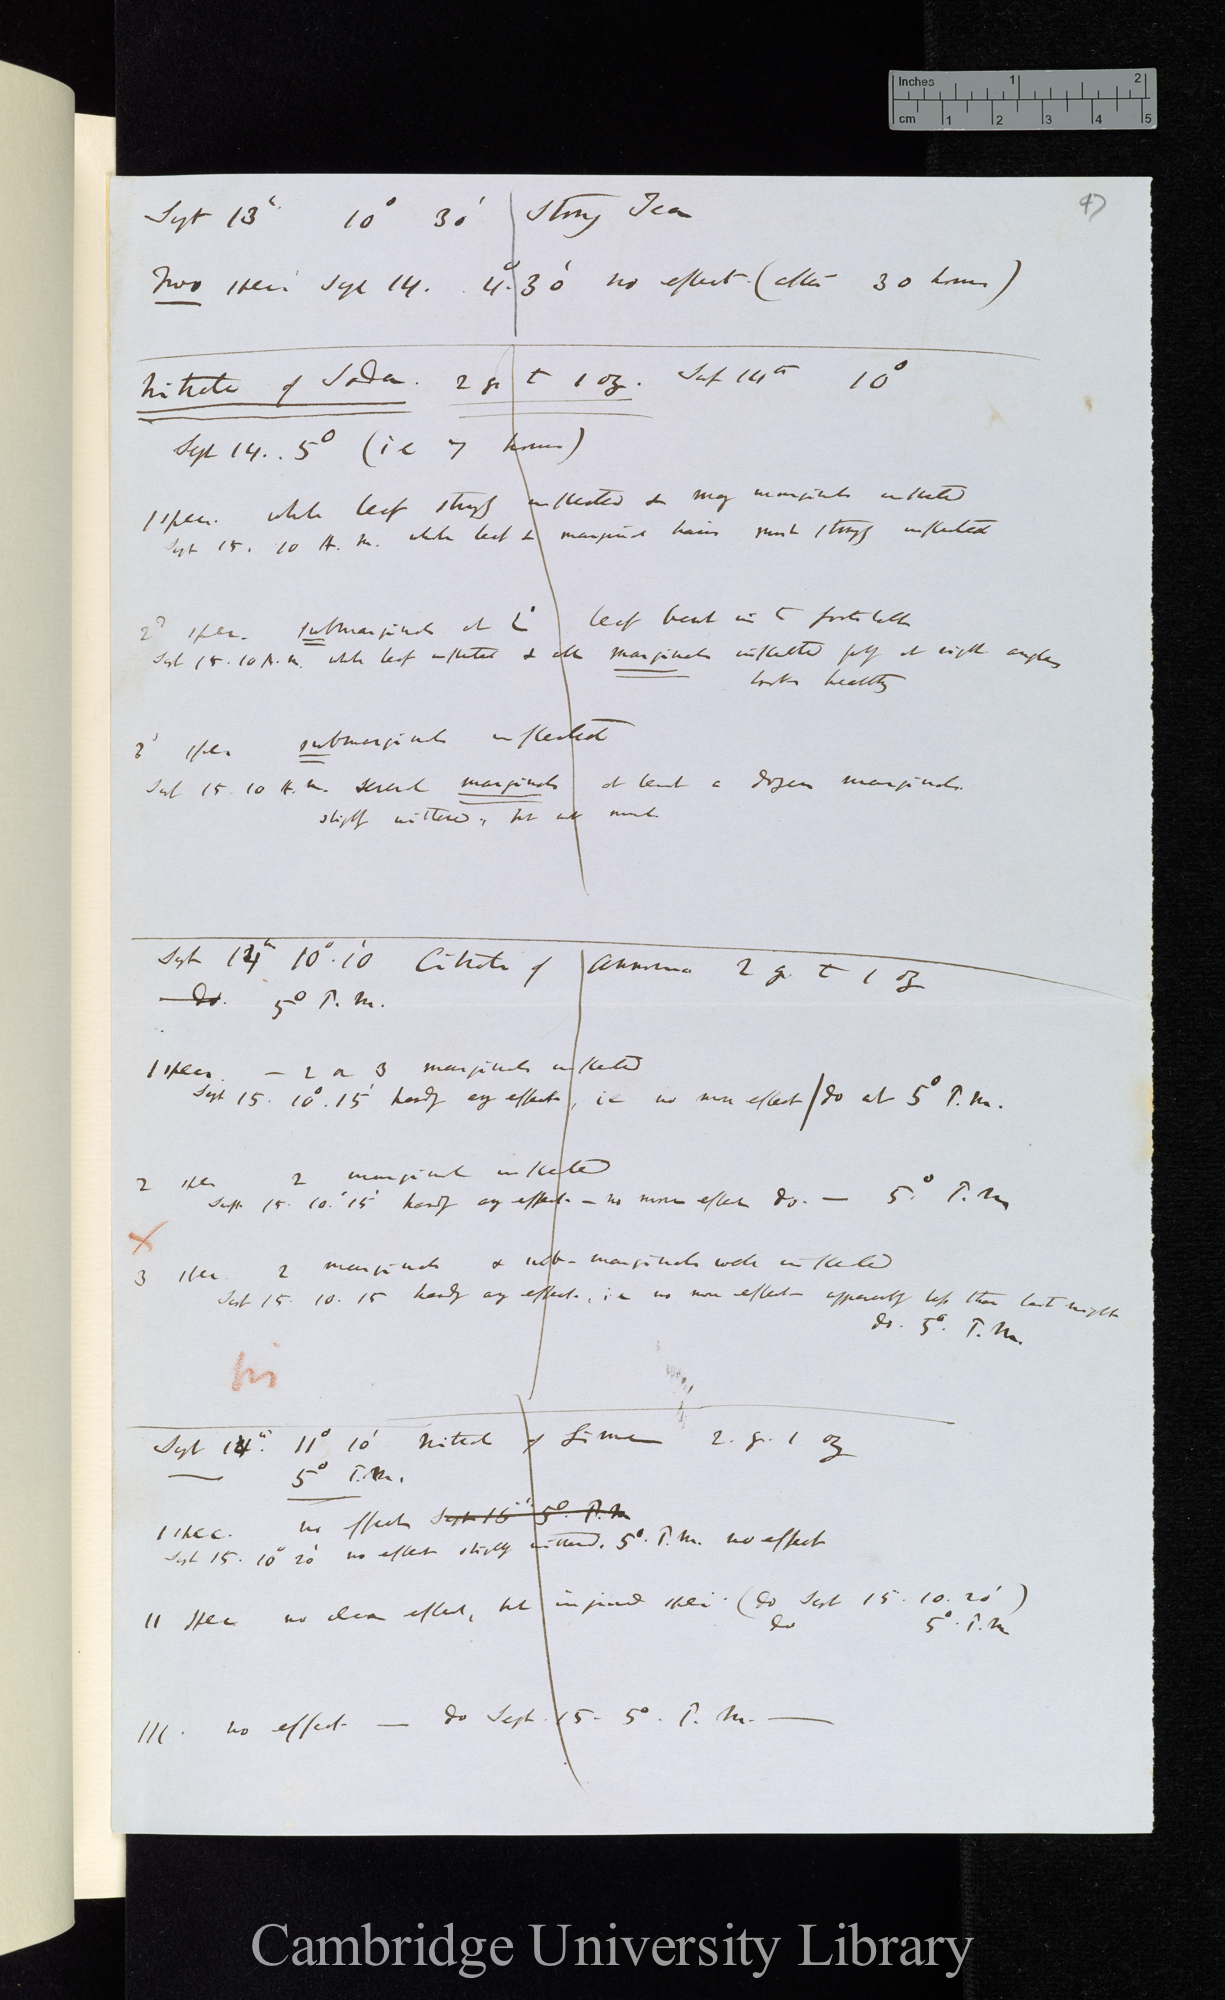 Inches 1 2
cm 1 2 3 4 5
Sept 13th 10° 30' Strong Tea
Two spec: Sept 14. 4°.30' no effect (after 30 hours)
Nitrate of Soda. 2 gr to 1 oz. Sept 14th 10°
Sept 14. 5° (ie 7 hours)
1 spec. whole leaf strongly inflected & many marginals inflected
Sept 15. 10 A.M. whole leaf & marginal hairs most strongly inflected
2d spec. submarginals leaf bent in
Sept 15. 10 A.M. whole leaf inflected & all marginals inflected at right angles
looks healthy
3d spec submarginals inflected
Sept 15. 10 A.M. several marginals at least a dozen marginals.
slightly withered, but not much.
Sept 14th 10°.10' Citrate of Ammonia 2 gr to 1 oz
do. 5° P.M.
1 spec. — 2 or 3 marginals inflected
Sept 15. 10°.15' hardly any effect, ie no more effect / do at 5° P.M.
2 spec 2 marginals inflected
Sept. 15. 10°.15' hardly any effect — no more effect do. — 5° P.M
3 spec. 2 marginals & sub-marginals well inflected
Sept 15. 10.15 hardly any effect, ie no more effect apparently less than last night
do. 5°. P.M.
Sept 14th. 11° 10' Nitrate of Lime 2. gr. 1 oz
5° P.M.
1 spec. no effect Sept 15 5°. P.M
Sept 15. 10° 20' no effect slightly withered. 5°. P.M. no effect
II spec no clear effect, but injured spec: (do Sept 15. 10.20')
do 5°. P.M
III. no effect — do Sept. 15. 5°. P.M. —
Cambridge University Library